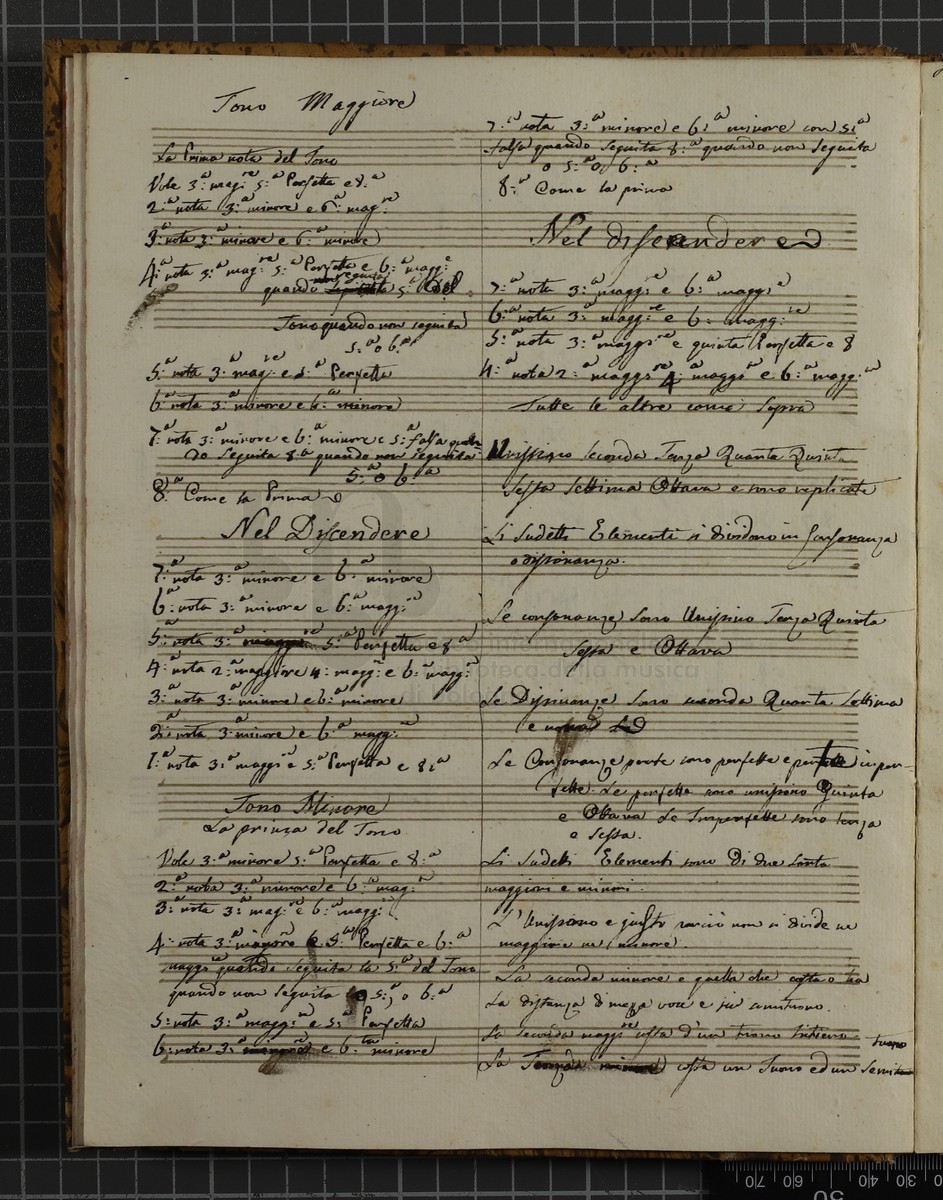 Tono Maggiore
La Prima nota del Tono
Vole 3:ª mag:re 5:ª Perfetta e 8:ª
2:ª nota 3:ª minore e 6:ª mag:re
3:ª nota 3:ª minore e 6:ª minore
4:ª nota 3:ª mag:re 5:ª Perfetta e 6:ª magg:e
non seguita
quando 5:ª Del
Tono quando non seguita
5:ª o 6:ª
5:ª nota 3:ª mag:re e 5:ª Perfetta
6:ª nota 3:ª minore e 6:ª minore
7:ª nota 3:ª minore e 6:ª minore e 5:ª falsa quan-
do seguita 8:ª quando non seguita
5:ª o 6:ª
8:ª Come la Prima
Nel Discendere
7:ª nota 3:ª minore e 6:ª minore
6:ª nota 3:ª minore e 6:ª magg:re
5:ª nota 3:ª maggi:re 5:ª Perfetta e 8ª
4:ª nota 2:ª maggiore 4:ª magg:e e 6:ª magg:re
3:ª nota 3:ª minore e 6:ª minore
2:ª nota 3:ª minore e 6:ª magg:re
1:ª nota 3:ª maggi:e 5:ª Perfetta e 8:ª
Tono Minore
La prima del Tono
Vole 3:ª minore 5:ª Perfetta e 8:ª
2:ª nota 3:ª minore e 6:ª mag:re
3:ª nota 3:ª mag:re e 6:ª magg:
4:ª nota 3:ª minore e 5:ª Perfetta e 6:ª
maggi:re quando seguita la 5:ª del Tono
quando non seguita o 5:ª, o 6:ª
5:ª nota 3:ª magg:re e 5:ª Perfetta
6:ª nota 3:ª e 6:ª minore
7:ª nota 3:ª minore e 6:ª minore con 5:ª
falsa quando seguita 8:ª quando non seguita
o 5:ª o 6:ª
8:ª Come la prima
Nel discendere
7:ª nota 3:ª magg:e e 6:ª maggi:e
6:ª nota 3:ª magg:re e 6:ª magg:re
5:ª nota 3:ª maggi:re e quinta Perfetta e 8
4:ª nota 2:ª maggi:re 4:ª maggi:e e 6:ª magg:re
Tutte le altre come Sopra
Unissino seconda Terza Quarta Quinta
Sessa Settima Ottava e sono replicate
Li sudetti Elementi si dividono in Consonanza
o dissonanza.
Le consonanze sono Unissino Terza Quinta
Sessa e Ottava
Le Dissonanze sono seconda Quarta Settima
e nona
Le Consonanze parte sono perfette e parte imper-
fette. Le perfette sono unissino Quinta
e Ottava Le Imperfette sono terza
e Sessa.
Li Sudetti Elementi sono Di due sorta
maggiori e minori.
L'Unissono e giusto perciò non si divide ne
maggiore ne minore.
La seconda minore e quella che costa o ha
La distanza di mezza voce e sia semitono.
La Seconda maggi:re costa d'un tuono Intiero
La Terza minore costa un Tuono ed un Semi-
tuono
biblioteca della musica